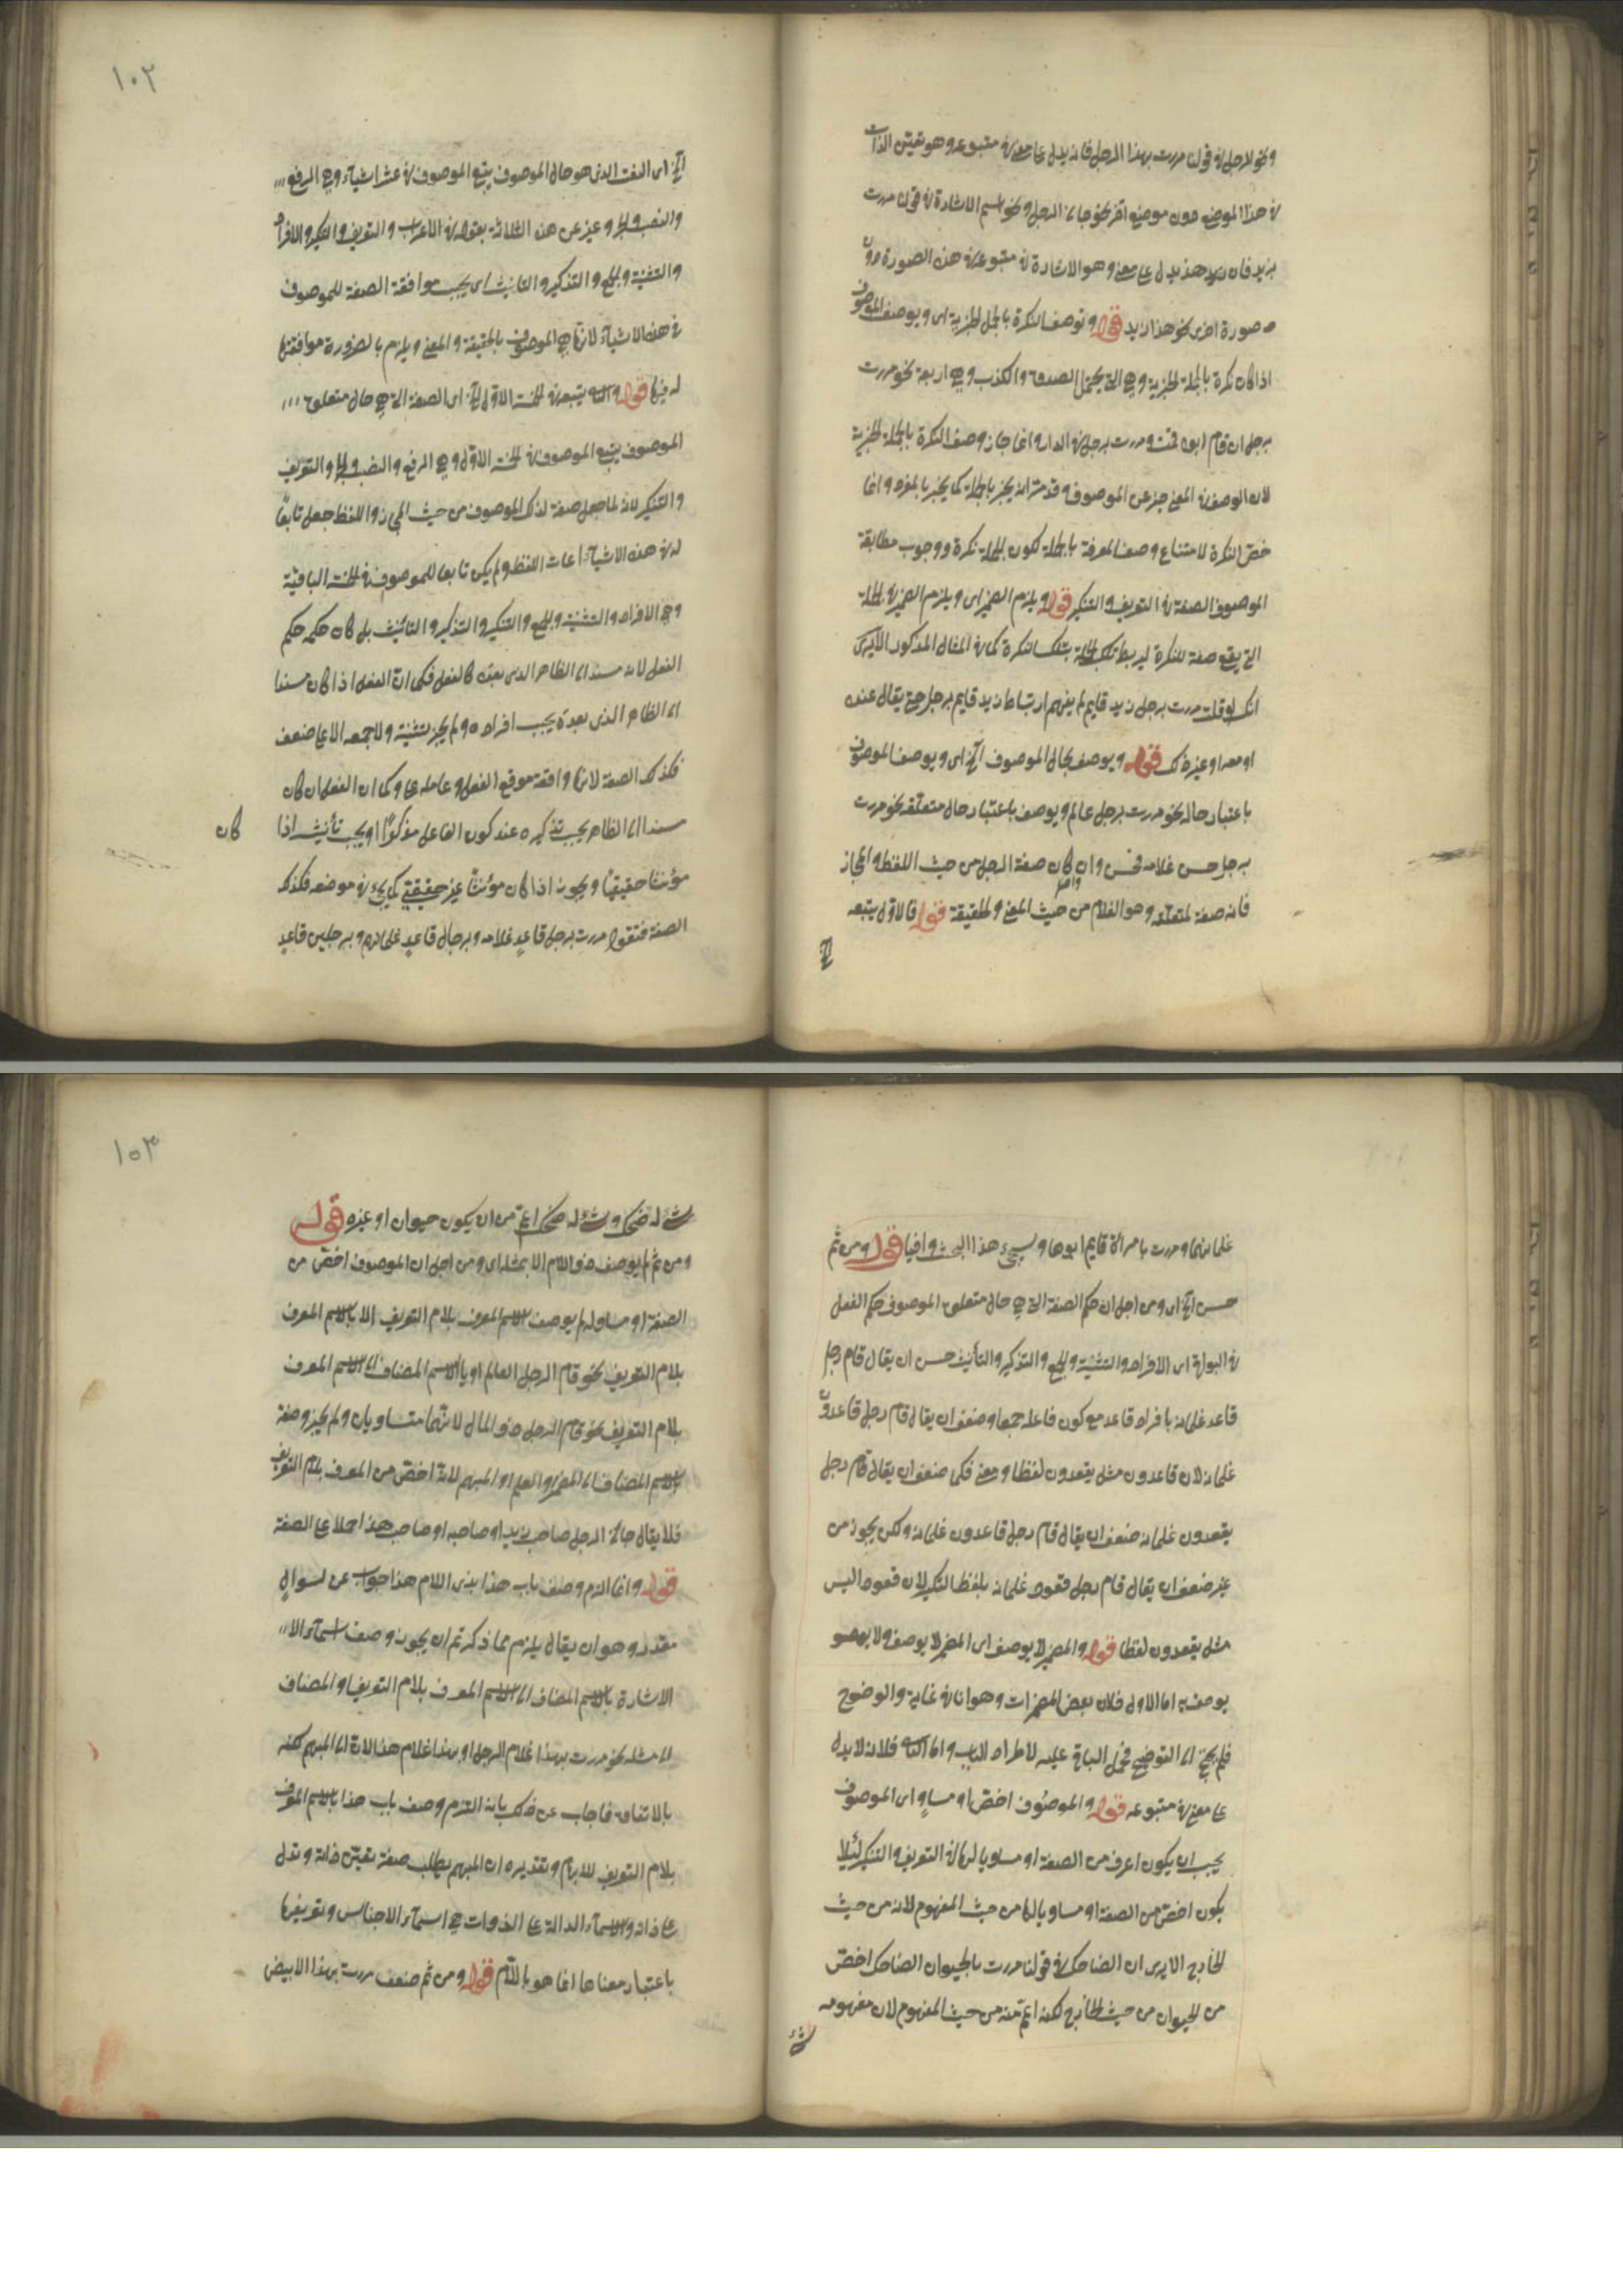 ونحو الرجل في قولنا مررت بهذا الرجل فانه يدل على معنى في متبوعه وهو تعيّن الذات
في هذا الموضع دون موضع آخر نحو جاءني الرجل ونحو اسم الاشارة في قولنا مررت
بزيد هذا يدل على معنى وهو الاشارة في متبوعه في هذه الصورة دون
صورة اخرى نحو هذا زيد قوله وتوصف النكرة بالجمل الخبرية اى ويوصف الموصوف
اذا كان نكرة بالجملة الخبرية وهي التي يحتمل الصدق والكذب وهي اربعة نحو مررت
برجل ان قام ابوه قمت ومررت برجل في الدار وانما جاز وصف النكرة بالجملة الخبرية
لان الوصف في المعنى خبر عن الموصوف وقد مرّ انه يخبر بالجملة كما يخبر بالمفرد وانما
خصّ النكرة لامتناع وصف المعرفة بالجملة لكون الجملة نكرة ووجوب مطابقة
الموصوف الصفة في التعريف والتنكير قوله ويلزم الضمير اى ويلزم الضمير في الجملة
التي يقع صفة للنكرة ليربط تلك الجملة بتلك النكرة كما في المثال المذكور الا يرى
انك لو قلت مررت برجل زيد قايم لم يفهم ارتباط زيد قايم برجل حتى يقال عنده
او معه او غير ذلك قوله ويوصف بحال الموصوف الخ اى ويوصف الموصوف
باعتبار حاله نحو مررت برجل عالم ويوصف باعتبار حال متعلّقه نحو مررت
برجل حسن غلامه فحسن وان كان صفة الرجل من حيث اللفظ والمجاز
فانه صفة لمتعلّقه وهو الغلام من حيث المعنى والحقيقة قوله فالاول يتبعه
الخ
١٠٢
الخ اى النعت الذى هو حال الموصوف يتبع الموصوف في عشرة اشياء وهي الرفع
والنصب والجر وعبّر عن هذه الثلاثة بقوله في الاعراب والتعريف والتنكير والافراد
والتثنية والجمع والتذكير والتانيث اى يجب موافقة الصفة للموصوف
في هذه الاشياء لانها هي الموصوف بالحقيقة والمعنى ويلزم بالضرورة موافقتها
له فيها قوله والثاني يتبعه في الخمسة الاول الخ اى الصفة التي هي حال متعلق
الموصوف يتبع الموصوف في الخمسة الاول وهي الرفع والنصب والجر والتعريف
والتنكير لانه لما جعل صفة لذلك الموصوف من حيث المجاز واللفظ جعل تابعًا
له في هذه الاشياء مراعات اللفظ ولم يكن تابعا للموصوف في الخمسة الباقية
وهي الافراد والتثنية والجمع والتنكير والتذكير والتأنيث بل كان حكمه حكم
الفعل لانه مسند الى الظاهر الذى بعده كالفعل فكما انّ الفعل اذا كان مسندا
الى الظاهر الذى بعده يجب افراده ولم يجز تثنيته ولا جمعه الا على ضعف
فكذلك الصفة لانها واقعة موقع الفعل وعامله عمله وكما ان الفعل ان كان
مسندا الى الظاهر يجب تذكيره عند كون الفاعل مذكرًا او يجب تأنيثه اذا كان
مؤنثا حقيقيًا ويجوز اذا كان مؤنثًا غير حقيقتي كما يجيء في موضعه فكذلك
الصفة فتقول مررت برجل قاعدٍ غلامه وبرجال قاعدٍ غلمانهم وبرجلين قاعدٍ
غلمانهما ومررت بامرأة قايم ابوها وسيجيء هذا البحث وافيا قوله ومن ثم
حسن الخ اى ومن اجل ان حكم الصفة التي هي حال متعلق الموصوف حكم الفعل
في البواقى اى الافراد والتثنية والجمع والتذكير والتأنيث حسن ان يقال قام رجل
قاعد غلمانه بافراد قاعد مع كون فاعله جمعا وضعف ان يقال قام رجل قاعدون
غلمانه لان قاعدون مثل يقعدون لفظا ومعنى فكما ضعف ان يقال قام رجل
يقعدون غلمانه ضعف ان يقال قام رجل قاعدون غلمانه ولكن يجوز من
غير ضعف ان يقال قام رجل قعود غلمانه بلفظ التكسير لان قعود اليس
مثل يقعدون لفظا قوله والمضمر لا يوصف اى المضمر لا يوصف ولا
يوصف به اما الاول فلان بعض المضمرات وهو انا في غاية والوضوح
فلم يحتج الى التوضيح فحمل الباقي عليه لاطراد الباب واما الثاني فلانه لا يدل
على معنى في متبوعه قوله والموصوف اخصّ او مساوٍ اى الموصوف
يجب ان يكون اعرف من الصفة او مساويا لها في التعريف والتنكير لئلا
يكون اخصّ من الصفة او مساويا لها من حيث المفهوم لانه من حيث
الخارج الا يرى ان الضاحك في قولنا مررت بالحيوان الضاحك اخصّ
من الحيوان من حيث الخارج لكنه اعمّ منه من حيث المفهوم لان مفهومه
شيء
١٠٣
شيء له ضحك وشيء له ضحك اعمّ من ان يكون حيوان او غيره قوله
ومن ثم لم يوصف ذو اللام الا بمثله اى ومن اجل ان الموصوف اخصّ من
الصفة او مساو لم يوصف الاسم المعرف بلام التعريف الا بالاسم المعرف
بلام التعريف نحو قام الرجل العالم او بالاسم المضاف الى الاسم المعرف
بلام التعريف نحو قام الرجل ذو المال لانّهما متساويان ولم يجز وصفه
بالاسم المضاف الى المضمر او العلم او المبهم لانه اخصّ من المعرف بلام التعريف
فلا يقال جاءني الرجل صاحب زيد او صاحبه او صاحب هذا حملا على الصفة
قوله وانما التزم وصف باب هذا بذى اللام هذا جواب عن سوالٍ
مقدر وهو ان يقال يلزم مما ذكرتم ان يجوز وصف اسماء الا
الاشارة بالاسم المضاف الى الاسم المعرف بلام التعريف او المضاف
الى مثله نحو مررت بهذا غلام الرجل او بهذا غلام هذا المبهم لكنه
بالاتفاق فاجاب عن ذلك بانه التزم وصف باب هذا بالاسم المعرف
بلام التعريف للابهام وتقديره ان المبهم يطلب صفة تعيّن ذاته وتدل
على ذاته والاسماء الدالة على الذوات هي اسماء الاجناس وتعريفها
باعتبار معناها انما هو باللّام قوله ومن ثم ضعف مررت بهذا الابيض